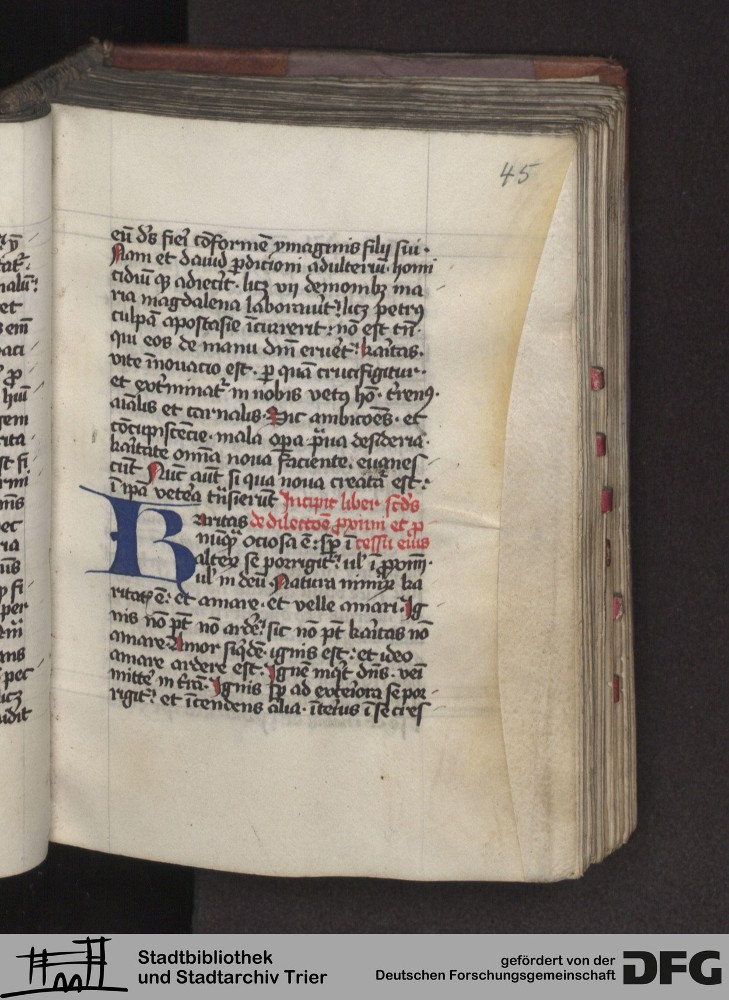 45
eū dꝰs fieri cōformē ymaginis filij sui·
Nam et dauid ꝑdicioni adulteriū· homi
cidiū qꝫ adiecit· licꝫ vij demonibꝫ ma
ria magdalena laborauit: licꝫ petrꝰ
culpā apostasie īcurrerit: nō est tn̄·
qui eos de manu dn̄i eruet: karitas·
vite īnouacio est· ꝑ quā crucifigitur·
et exterminat᷑ in nobis vetꝰ hō· t͛renꝰ·
aīalis et carnalis· Sic ambicōes· et
cōcupiscēcie· mala oꝑa praua desideria·
karitate om̄ia noua faciente· euanes
cūt Nūc aūt si qua noua creatura est:
ī ipā vetera trāsierūt Incipit liber scd̄s
Karitas de dilectōe ꝓximi et ꝑ
nūqꝫ ociosa ē: sꝑ ī cessū eius
alterꝫ se porrigit: ul' ī ꝓximū·
ul' in deū· Natura nimirꝫ ka
ritatꝭ ē: et amare· et velle amari· Ig
nis nō pt̄ nō ardere: sic nō pt̄ karitas nō
amare· Amor siqͥdē ignis est: et ideo
amare ardere est· Ignē inqͥt dn̄s· veni
mitte in t͛rā· Ignis sꝑ ad exteriora se por
rigit: et īcendens alia· īterius ī se cres
Stadtbibliothek
und Stadtarchiv Trier
gefördert von der
Deutschen Forschungsgemeinschaft
DFG